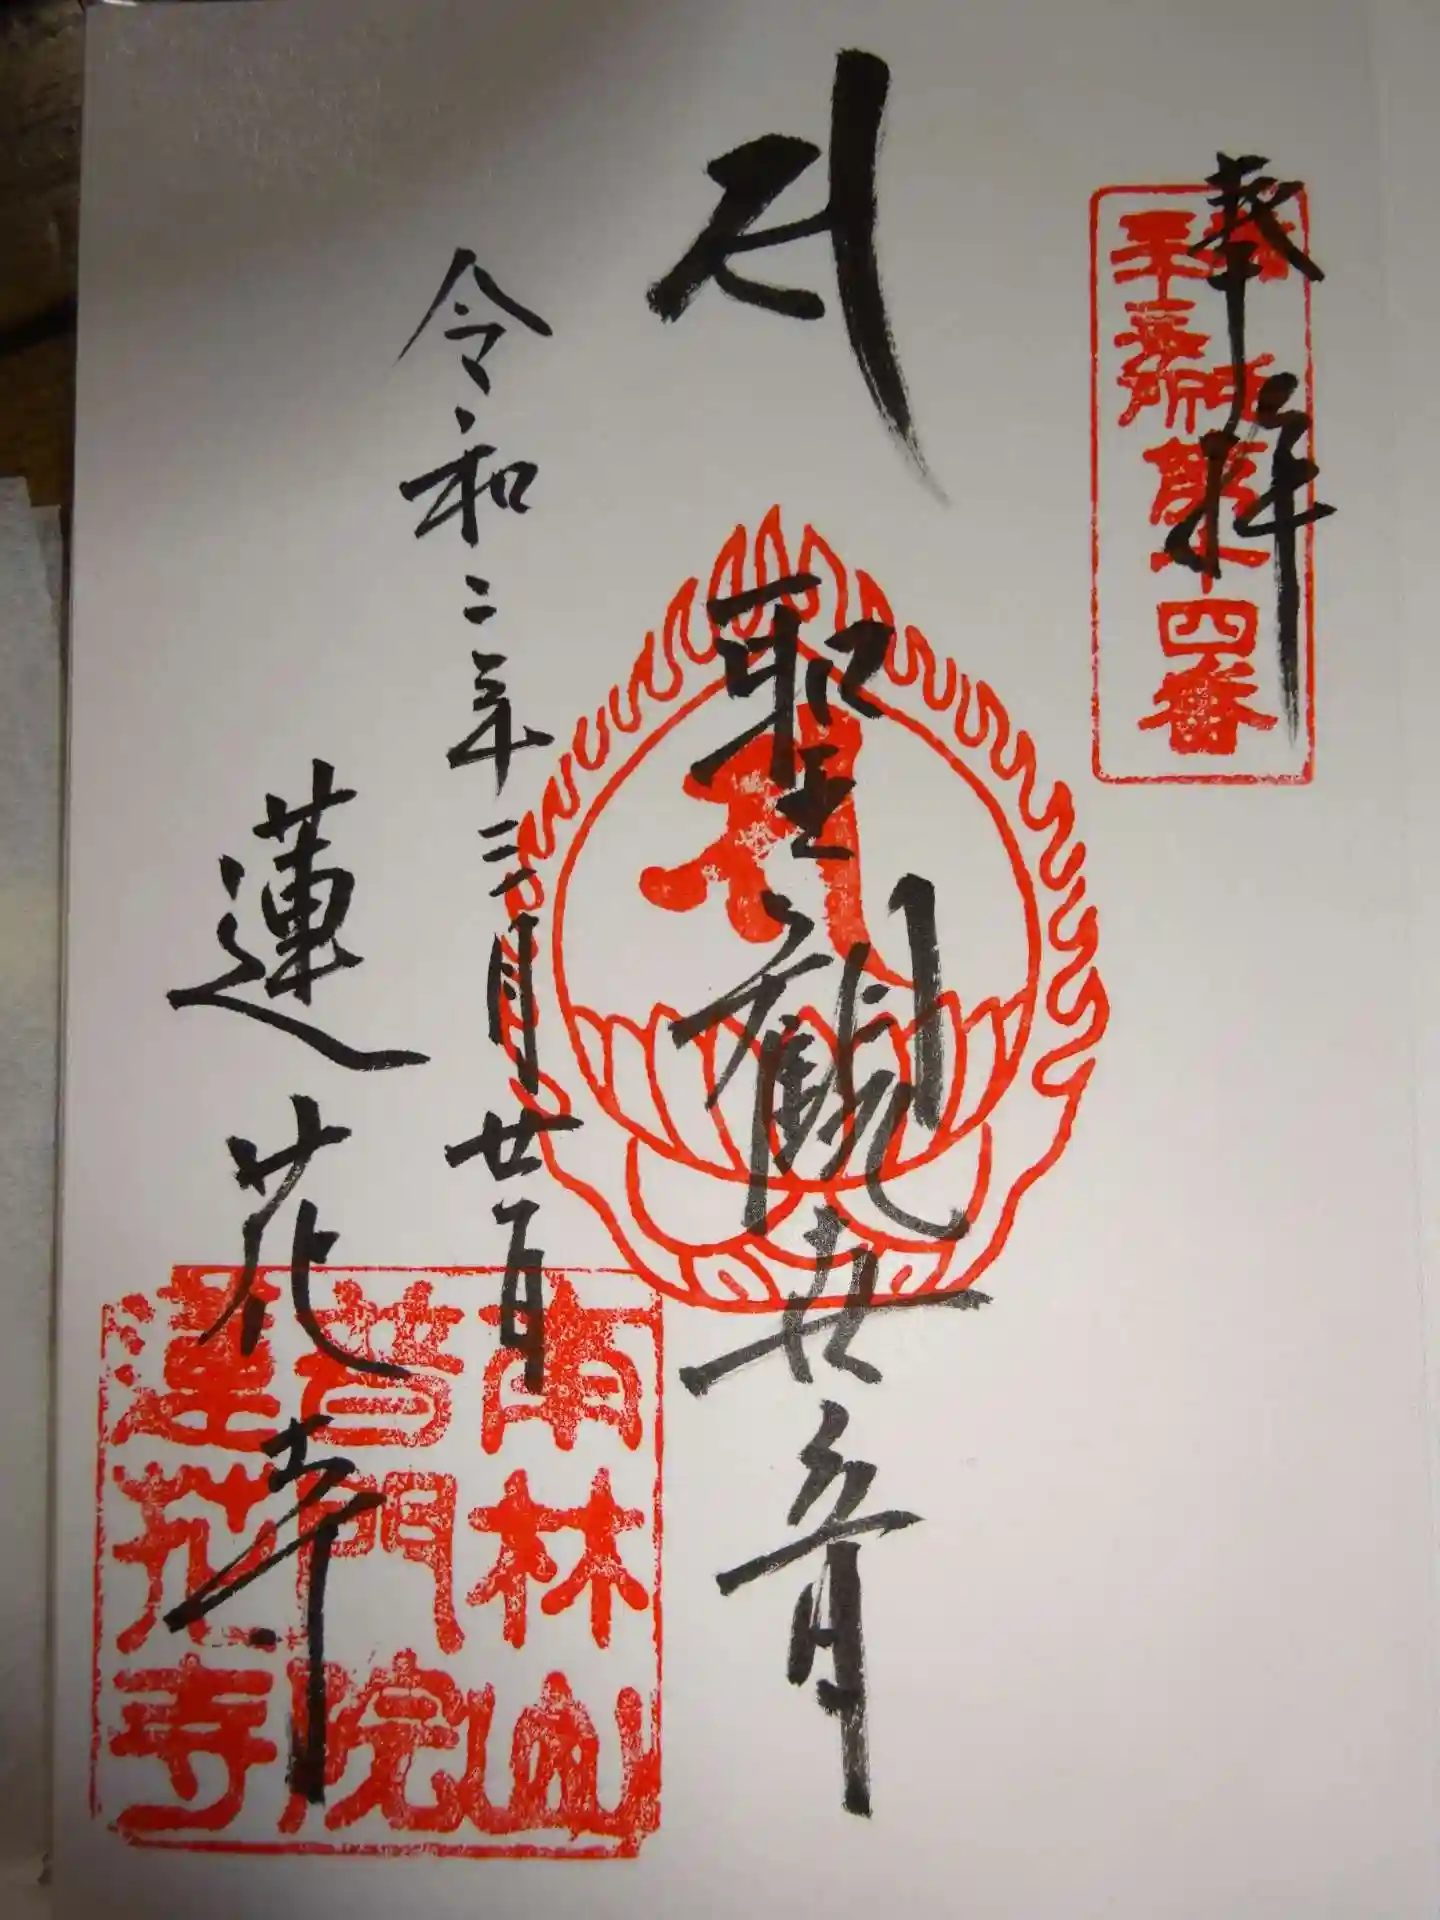 奉拝
三十三所
第十四番
サ
聖観世音
令和二年二月廿一日
蓮花寺
南林山
普門院
蓮花寺